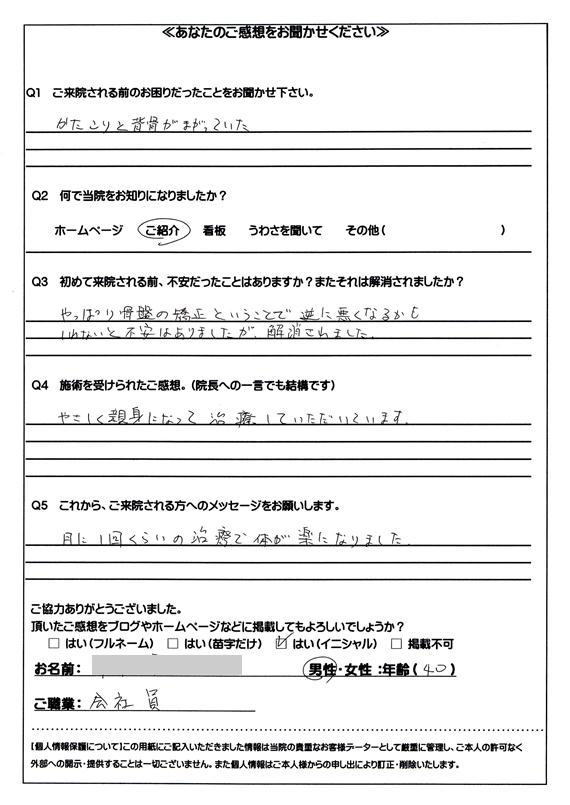 ≪あなたのご感想をお聞かせください≫
Q1 ご来院される前のお困りだったことをお聞かせ下さい。
かたこりと背骨がまがっていた
Q2 何で当院をお知りになりましたか？
ホームページ ご紹介 看板 うわさを聞いて その他( )
Q3 初めて来院される前、不安だったことはありますか？またそれは解消されましたか？
やっぱり骨盤の矯正ということで逆に悪くなるかも
しれないと不安はありましたが、解消されました。
Q4 施術を受けられたご感想。(院長への一言でも結構です)
やさしく親身になって治療していただいています。
Q5 これから、ご来院される方へのメッセージをお願いします。
月に1回くらいの治療で体が楽になりました。
ご協力ありがとうございました。
頂いたご感想をブログやホームページなどに掲載してもよろしいでしょうか？
□ はい(フルネーム) □ はい(苗字だけ) ☑ はい(イニシャル) □ 掲載不可
お名前： 男性・女性 ：年齢( 40 )
ご職業： 会社員
【個人情報保護について】この用紙にご記入いただきました情報は当院の貴重なお客様データーとして厳重に管理し、ご本人の許可なく
外部への開示・提供することは一切ございません。また個人情報はご本人様からの申し出により訂正・削除いたします。